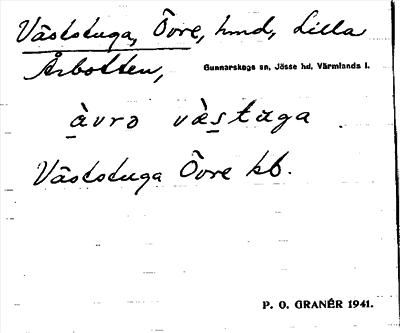 Väststuga, Övre, hmd, Lilla
Årbotten, Gunnarskogs sn, Jösse hd, Värmlands l.
àvrə vàstuga
Väststuga Övre kb.
P. O. GRANÉR 1941.